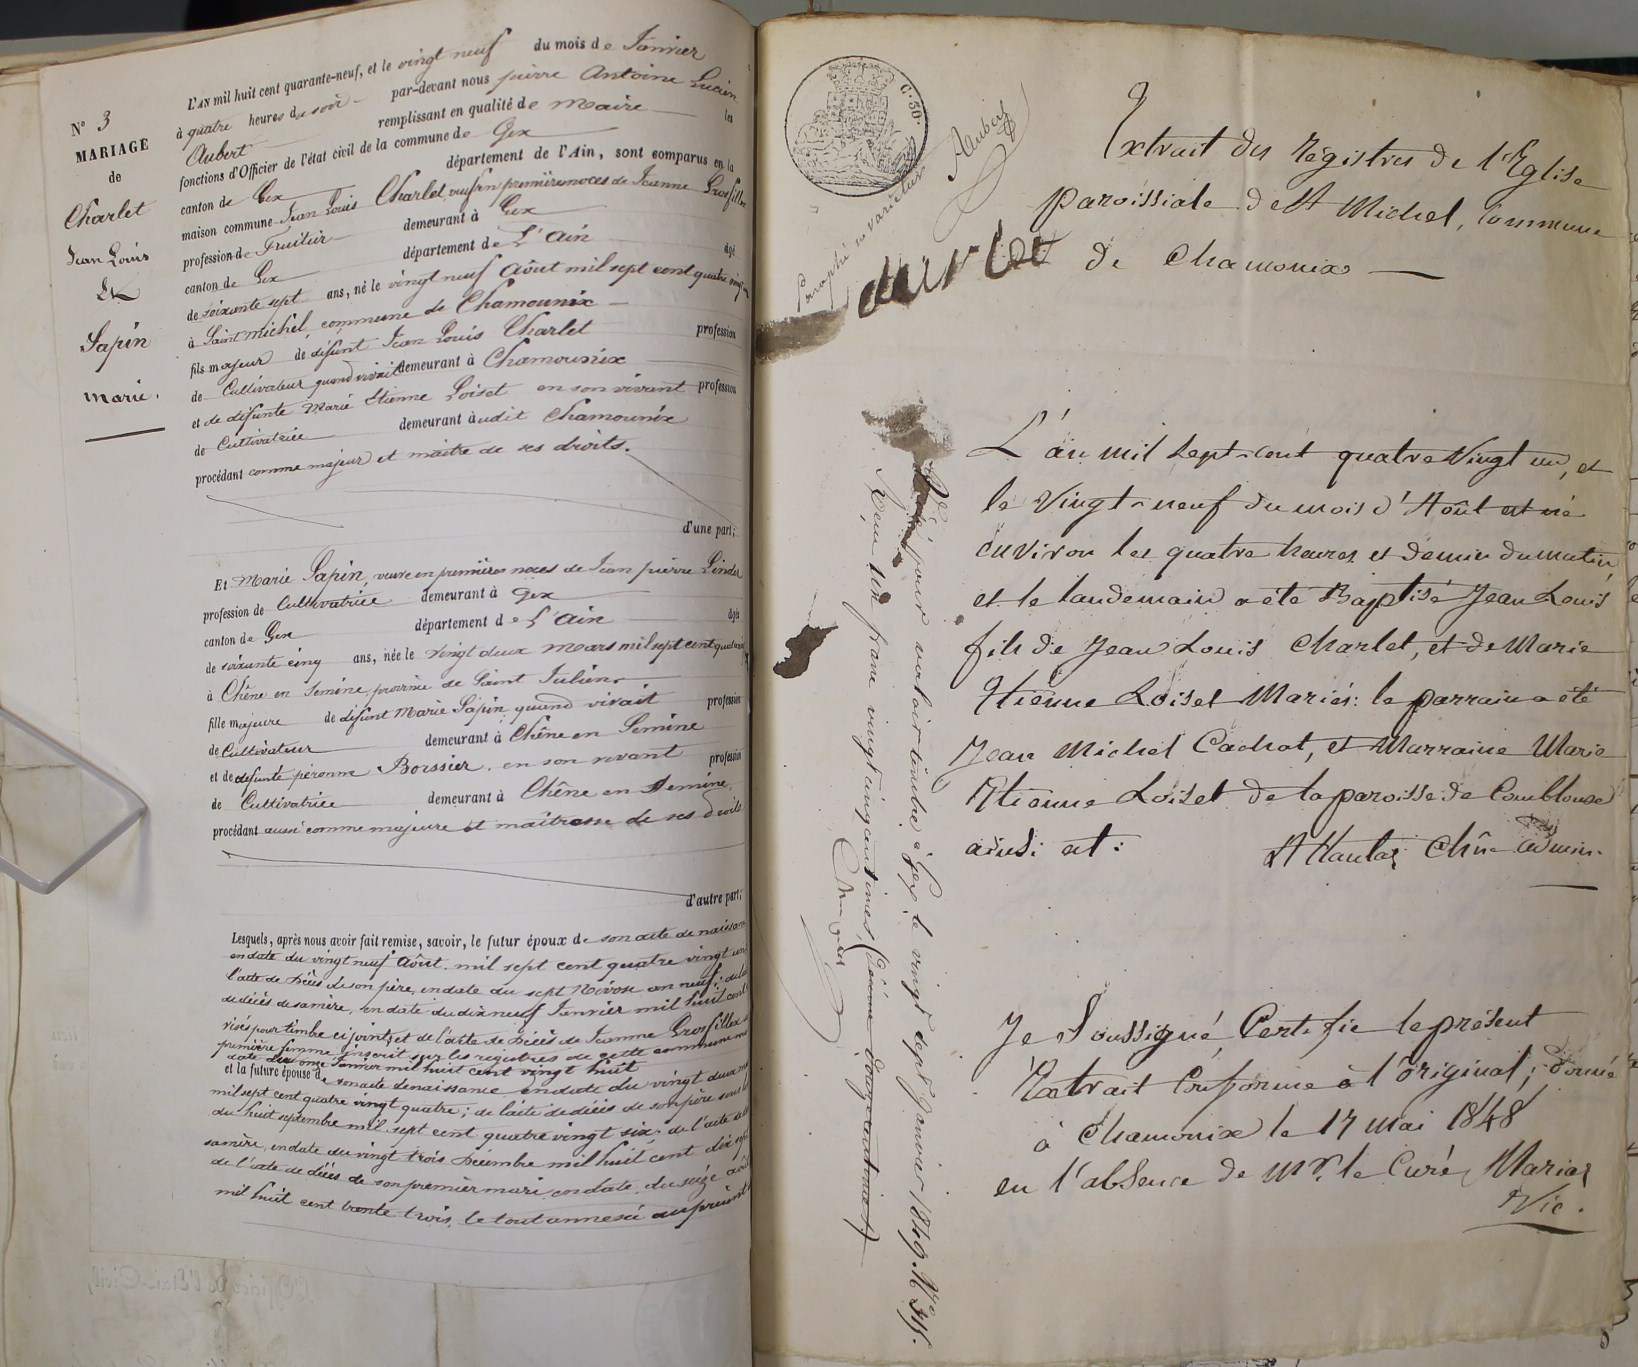 N° 3
MARIAGE
de
Charlet
Jean Louis
Et
Sapin
marie.
L'AN mil huit cent quarante-neuf, et le vingt neuf du mois de Janvier
à quatre heures du soir par-devant nous pierre Antoine Lucien
Aubert remplissant en qualité de maire les
fonctions d'Officier de l'état civil de la commune de Gex
canton de Gex département de l'Ain, sont comparus en la
maison commune Jean Louis Charlet, veuf en premières noces de Jeanne Grosfillex
profession de Fruitier demeurant à Gex
canton de Gex département de L'ain âgé
de soixante sept ans, né le vingt neuf Août mil sept cent quatre vingt un
à Saint michel, commune de Chamounix
fils majeur de défunt Jean Louis Charlet profession
de Cultivateur quand vivait demeurant à Chamounix
et de défunte Marie Etienne Loiset en son vivant profession
de Cultivatrice demeurant àudit Chamounix
procédant comme majeur et maître de ses droits.
d'une part;
Et Marie Sapin, veuve en premières noces de Jean pierre Linder
profession de Cultivatrice demeurant à Gex
canton de Gex département de L'ain âgée
de soixante cinq ans, née le vingt deux mars mil sept cent quatre
à Chêne en Semine, province de Saint Julien
fille majeure de défunt Marie Sapin quand vivait profession
de Cultivateur demeurant à Chêne en Semine
et de défunte péronne Boissier en son vivant profession
de Cultivatrice demeurant à Chêne en Semine,
procédant aussi comme majeure et maîtresse de ses droits
d'autre part;
Lesquels, après nous avoir fait remise, savoir, le futur époux de son acte de naissance
en date du vingt neuf Août mil sept cent quatre vingt un
l'acte de décès de son père, en date du sept Nivose an neuf;
de décès de sa mère, en date du dix neuf Janvier mil huit cent
visés pour timbre ci joints, et de l'acte de décès de Jeanne Grosfillex
première femme, inscrit sur les registres de cette commune
date du onze Janvier mil huit cent vingt huit
et la future épouse de son acte de naissance en date du vingt deux
mil sept cent quatre vingt quatre; de l'acte de décès de son père sous
du huit septembre mil sept cent quatre vingt six. de l'acte de
sa mère, en date du vingt trois décembre mil huit cent dix sept
de l'acte de décès de son premier mari, en date du seize août
mil huit cent trente trois, le tout annexé au présent
C. 30.
Paraphé ne varietur
Aubert
Extrait des Régistres de l'Eglise
paroissiale de St Michel, Commune
de Chamonix
L'an mil sept-cent quatre Vingt un, et
le Vingt-neuf du mois d'Août est né
environ les quatre heures et demie du matin
et le landemain a été Baptisé Jean Louis
fils de Jean Louis Charlet, et de Marie
Etienne Loiset Mariés: le parrain a été
Jean Michel Cachat, et Marraine Marie
Etienne Loiset de la paroisse de Combloux
ainsi est:
Je Soussigné, Certifie le présent
Extrait Conforme à l'Original; donné
à Chamonix le 17 Mai 1848
en l'absence de Mr. le Curé,
Vic.
Visé pour valoir timbre à Gex, le vingt sept Janvier 1849.
Reçu un franc vingt cinq centimes,